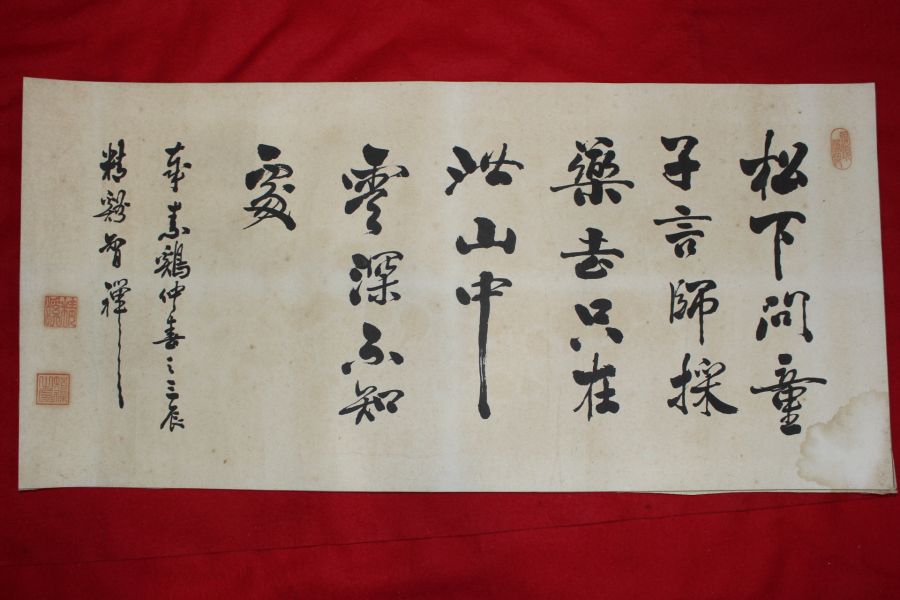 松下問童
子言師採
藥去只在
此山中
雲深不知
處
辛未鷄仲春之三辰
精谿智禪